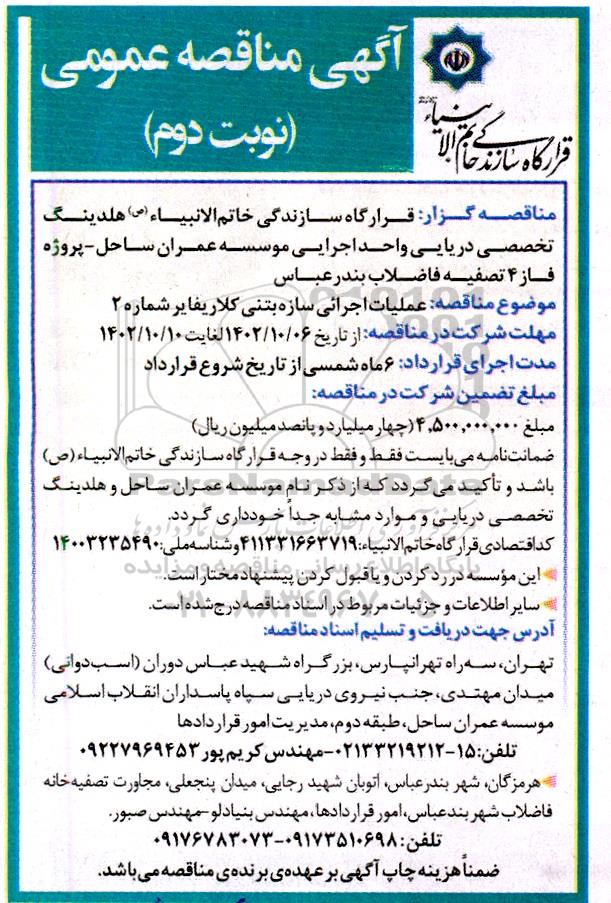 آگهی مناقصه عمومی
(نوبت دوم)
قرارگاه سازندگی خاتم الانبیاء
مناقصه گزار: قرارگاه سازندگی خاتم الانبیاء (ص) هلدینگ
تخصصی دریایی واحد اجرایی موسسه عمران ساحل-پروژه
فاز ۴ تصفیه فاضلاب بندرعباس
موضوع مناقصه: عملیات اجرائی سازه بتنی کلاریفایر شماره ۲
مهلت شرکت در مناقصه: از تاریخ ۱۴۰۲/۱۰/۰۶ لغایت ۱۴۰۲/۱۰/۱۰
مدت اجرای قرارداد: ۶ ماه شمسی از تاریخ شروع قرارداد
مبلغ تضمین شرکت در مناقصه:
مبلغ ۴,۵۰۰,۰۰۰,۰۰۰ (چهار میلیارد و پانصد میلیون ریال)
ضمانت‌نامه می‌بایست فقط و فقط در وجه قرارگاه سازندگی خاتم الانبیاء (ص)
باشد و تأکید می‌گردد که از ذکر نام موسسه عمران ساحل و هلدینگ
تخصصی دریایی و موارد مشابه جداً خودداری گردد.
کد اقتصادی قرارگاه خاتم الانبیاء: ۴۱۱۳۳۱۶۶۳۷۱۹ و شناسه ملی: ۱۴۰۰۳۲۳۵۴۹۰
این مؤسسه در رد کردن و یا قبول کردن پیشنهاد مختار است.
سایر اطلاعات و جزئیات مربوط در اسناد مناقصه درج شده است.
آدرس جهت دریافت و تسلیم اسناد مناقصه:
تهران، سه‌راه تهرانپارس، بزرگراه شهید عباس دوران (اسب‌دوانی)
میدان مهتدی، جنب نیروی دریایی سپاه پاسداران انقلاب اسلامی
موسسه عمران ساحل، طبقه دوم، مدیریت امور قراردادها
تلفن: ۱۵-۰۲۱۳۳۲۱۹۲۱۲-مهندس کریم پور ۰۹۲۲۷۹۶۹۴۵۳
هرمزگان، شهر بندرعباس، اتوبان شهید رجایی، میدان پنجعلی، مجاورت تصفیه‌خانه
فاضلاب شهر بندعباس، امور قراردادها، مهندس بنیادلو-مهندس صبور.
تلفن: ۰۹۱۷۳۵۱۰۶۹۸-۰۹۱۷۶۷۸۳۰۷۳
ضمناً هزینه چاپ آگهی بر عهده‌ی برنده‌ی مناقصه می‌باشد.